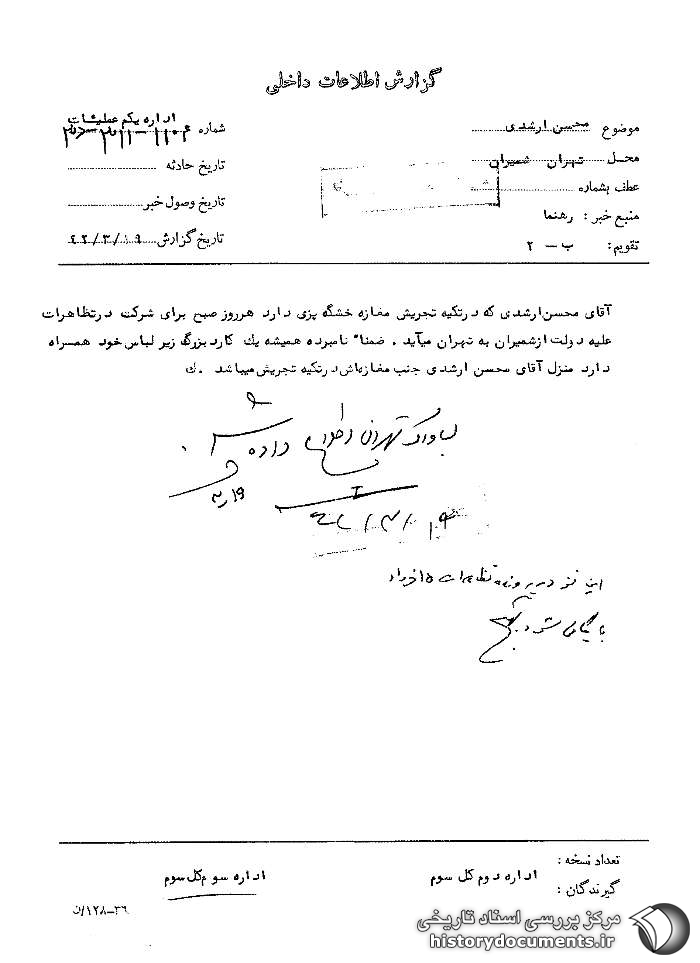 گزارش اطلاعات داخلی
اداره یکم عملیات
موضوع محسن ارشدی
شماره
محل تهران شمیران
تاریخ حادثه
عطف بشماره
تاریخ وصول خبر
منبع خبر : رهنما
تاریخ گزارش ۴۲/۳/۱۹
تقویم : ب – ۲
آقای محسن ارشدی که درتکیه تجریش مغازه خشگه پزی دارد هرروز صبح برای شرکت درتظاهرات
علیه دولت ازشمیران به تهران میآید . ضمناً نامبرده همیشه یك کارد بزرگ زیر لباس خود همراه
دارد منزل آقای محسن ارشدی جنب مغازه‌اش درتکیه تجریش میباشد . ك
بساواک تهران اطلاع داده شد
۱۹/۳
۴۲/۳/۱۹
این نیز در پرونده تظاهرات ۱۵ خرداد
بایگانی شود
تعداد نسخه :
گیرندگان :
اداره دوم کل سوم
اداره سوم کل سوم
۳۶–۱۲۸/ن
مرکز بررسی اسناد تاریخی
historydocuments.ir